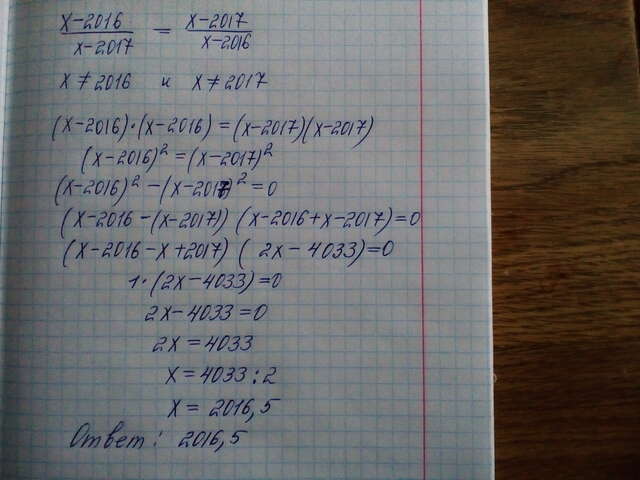 x-2016/x-2017 = x-2017/x-2016
x≠2016 и x≠2017
(x-2016)·(x-2016)=(x-2017)(x-2017)
(x-2016)²=(x-2017)²
(x-2016)²-(x-2017)²=0
(x-2016-(x-2017))(x-2016+x-2017)=0
(x-2016-x+2017)(2x-4033)=0
1·(2x-4033)=0
2x-4033=0
2x=4033
x=4033:2
x=2016,5
Ответ: 2016,5